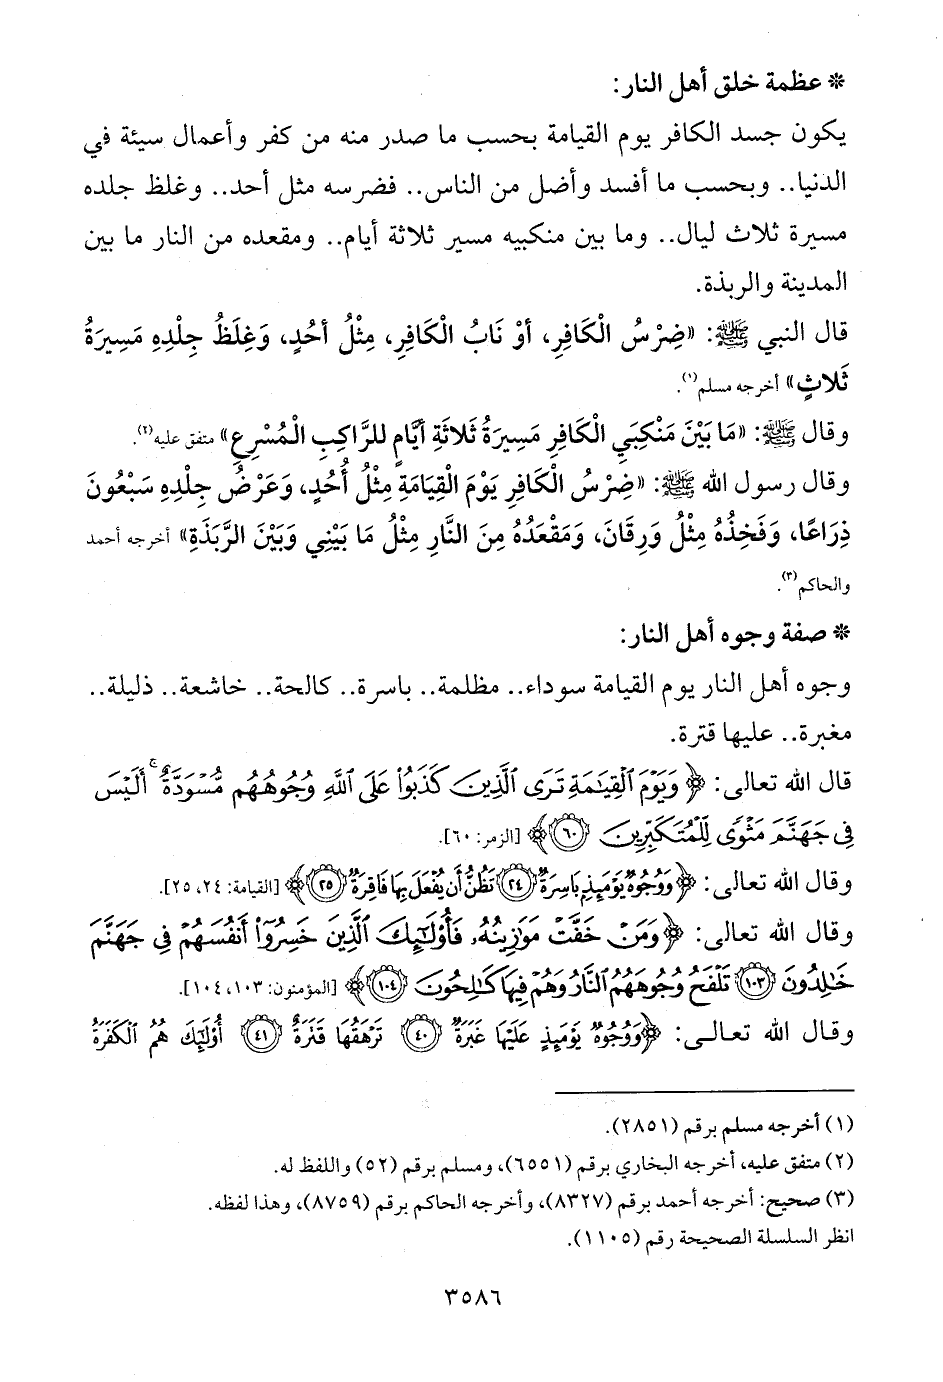 * عظمة خلق أهل النار:
يكون جسد الكافر يوم القيامة بحسب ما صدر منه من كفر وأعمال سيئة في
الدنيا.. وبحسب ما أفسد وأضل من الناس.. فضرسه مثل أحد.. وغلظ جلده
مسيرة ثلاث ليال.. وما بين منكبيه مسير ثلاثة أيام.. ومقعده من النار ما بين
المدينة والربذة.
قال النبي ﷺ: «ضِرْسُ الْكَافِرِ، أوْ نَابُ الْكَافِرِ، مِثْلُ أحُدٍ، وَغِلَظُ جِلْدِهِ مَسِيرَةُ
ثَلاثٍ» أخرجه مسلم(١).
وقال ﷺ: «مَا بَيْنَ مَنْكِبَيِ الْكَافِرِ مَسِيرَةُ ثَلاثَةِ أيَّامٍ للرَّاكِبِ الْمُسْرِعِ» متفق عليه(٢).
وقال رسول الله ﷺ: «ضِرْسُ الْكَافِرِ يَوْمَ الْقِيَامَةِ مِثْلُ أُحُدٍ، وَعَرْضُ جِلْدِهِ سَبْعُونَ
ذِرَاعًا، وَفَخِذُهُ مِثْلُ وَرِقَانَ، وَمَقْعَدُهُ مِنَ النَّارِ مِثْلُ مَا بَيْنِي وَبَيْنَ الرَّبَذَةِ» أخرجه أحمد
والحاكم(٣).
* صفة وجوه أهل النار:
وجوه أهل النار يوم القيامة سوداء.. مظلمة.. باسرة.. كالحة.. خاشعة.. ذليلة..
مغبرة.. عليها قترة.
قال الله تعالى: ﴿وَيَوْمَ ٱلْقِيَٰمَةِ تَرَى ٱلَّذِينَ كَذَبُوا۟ عَلَى ٱللَّهِ وُجُوهُهُم مُّسْوَدَّةٌ ۚ أَلَيْسَ
فِى جَهَنَّمَ مَثْوًى لِّلْمُتَكَبِّرِينَ ٦٠﴾ [الزمر: ٦٠].
وقال الله تعالى: ﴿وَوُجُوهٌ يَوْمَئِذٍۭ بَاسِرَةٌ ٢٤ تَظُنُّ أَن يُفْعَلَ بِهَا فَاقِرَةٌ ٢٥﴾ [القيامة: ٢٤، ٢٥].
وقال الله تعالى: ﴿وَمَنْ خَفَّتْ مَوَٰزِينُهُۥ فَأُو۟لَٰٓئِكَ ٱلَّذِينَ خَسِرُوٓا۟ أَنفُسَهُمْ فِى جَهَنَّمَ
خَٰلِدُونَ ١٠٣ تَلْفَحُ وُجُوهَهُمُ ٱلنَّارُ وَهُمْ فِيهَا كَٰلِحُونَ ١٠٤﴾ [المؤمنون: ١٠٣، ١٠٤].
وقال الله تعالى: ﴿وَوُجُوهٌ يَوْمَئِذٍ عَلَيْهَا غَبَرَةٌ ٤٠ تَرْهَقُهَا قَتَرَةٌ ٤١ أُو۟لَٰٓئِكَ هُمُ ٱلْكَفَرَةُ
(١) أخرجه مسلم برقم (٢٨٥١).
(٢) متفق عليه، أخرجه البخاري برقم (٦٥٥١)، ومسلم برقم (٥٢) واللفظ له.
(٣) صحيح: أخرجه أحمد برقم (٨٣٢٧)، وأخرجه الحاكم برقم (٨٧٥٩)، وهذا لفظه.
انظر السلسلة الصحيحة رقم (١١٠٥).
٣٥٨٦